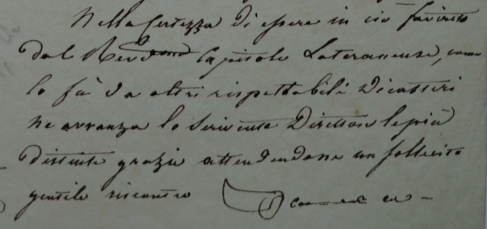 Nella certezza di essere in ciò favorito
dal Rev.do Capitolo Lateranense, come
lo fù da altri rispettabili Dicasteri
ne avvanza lo scrivente Direttore le più
distinte grazie attendendone un sollecito
gentile riscontro